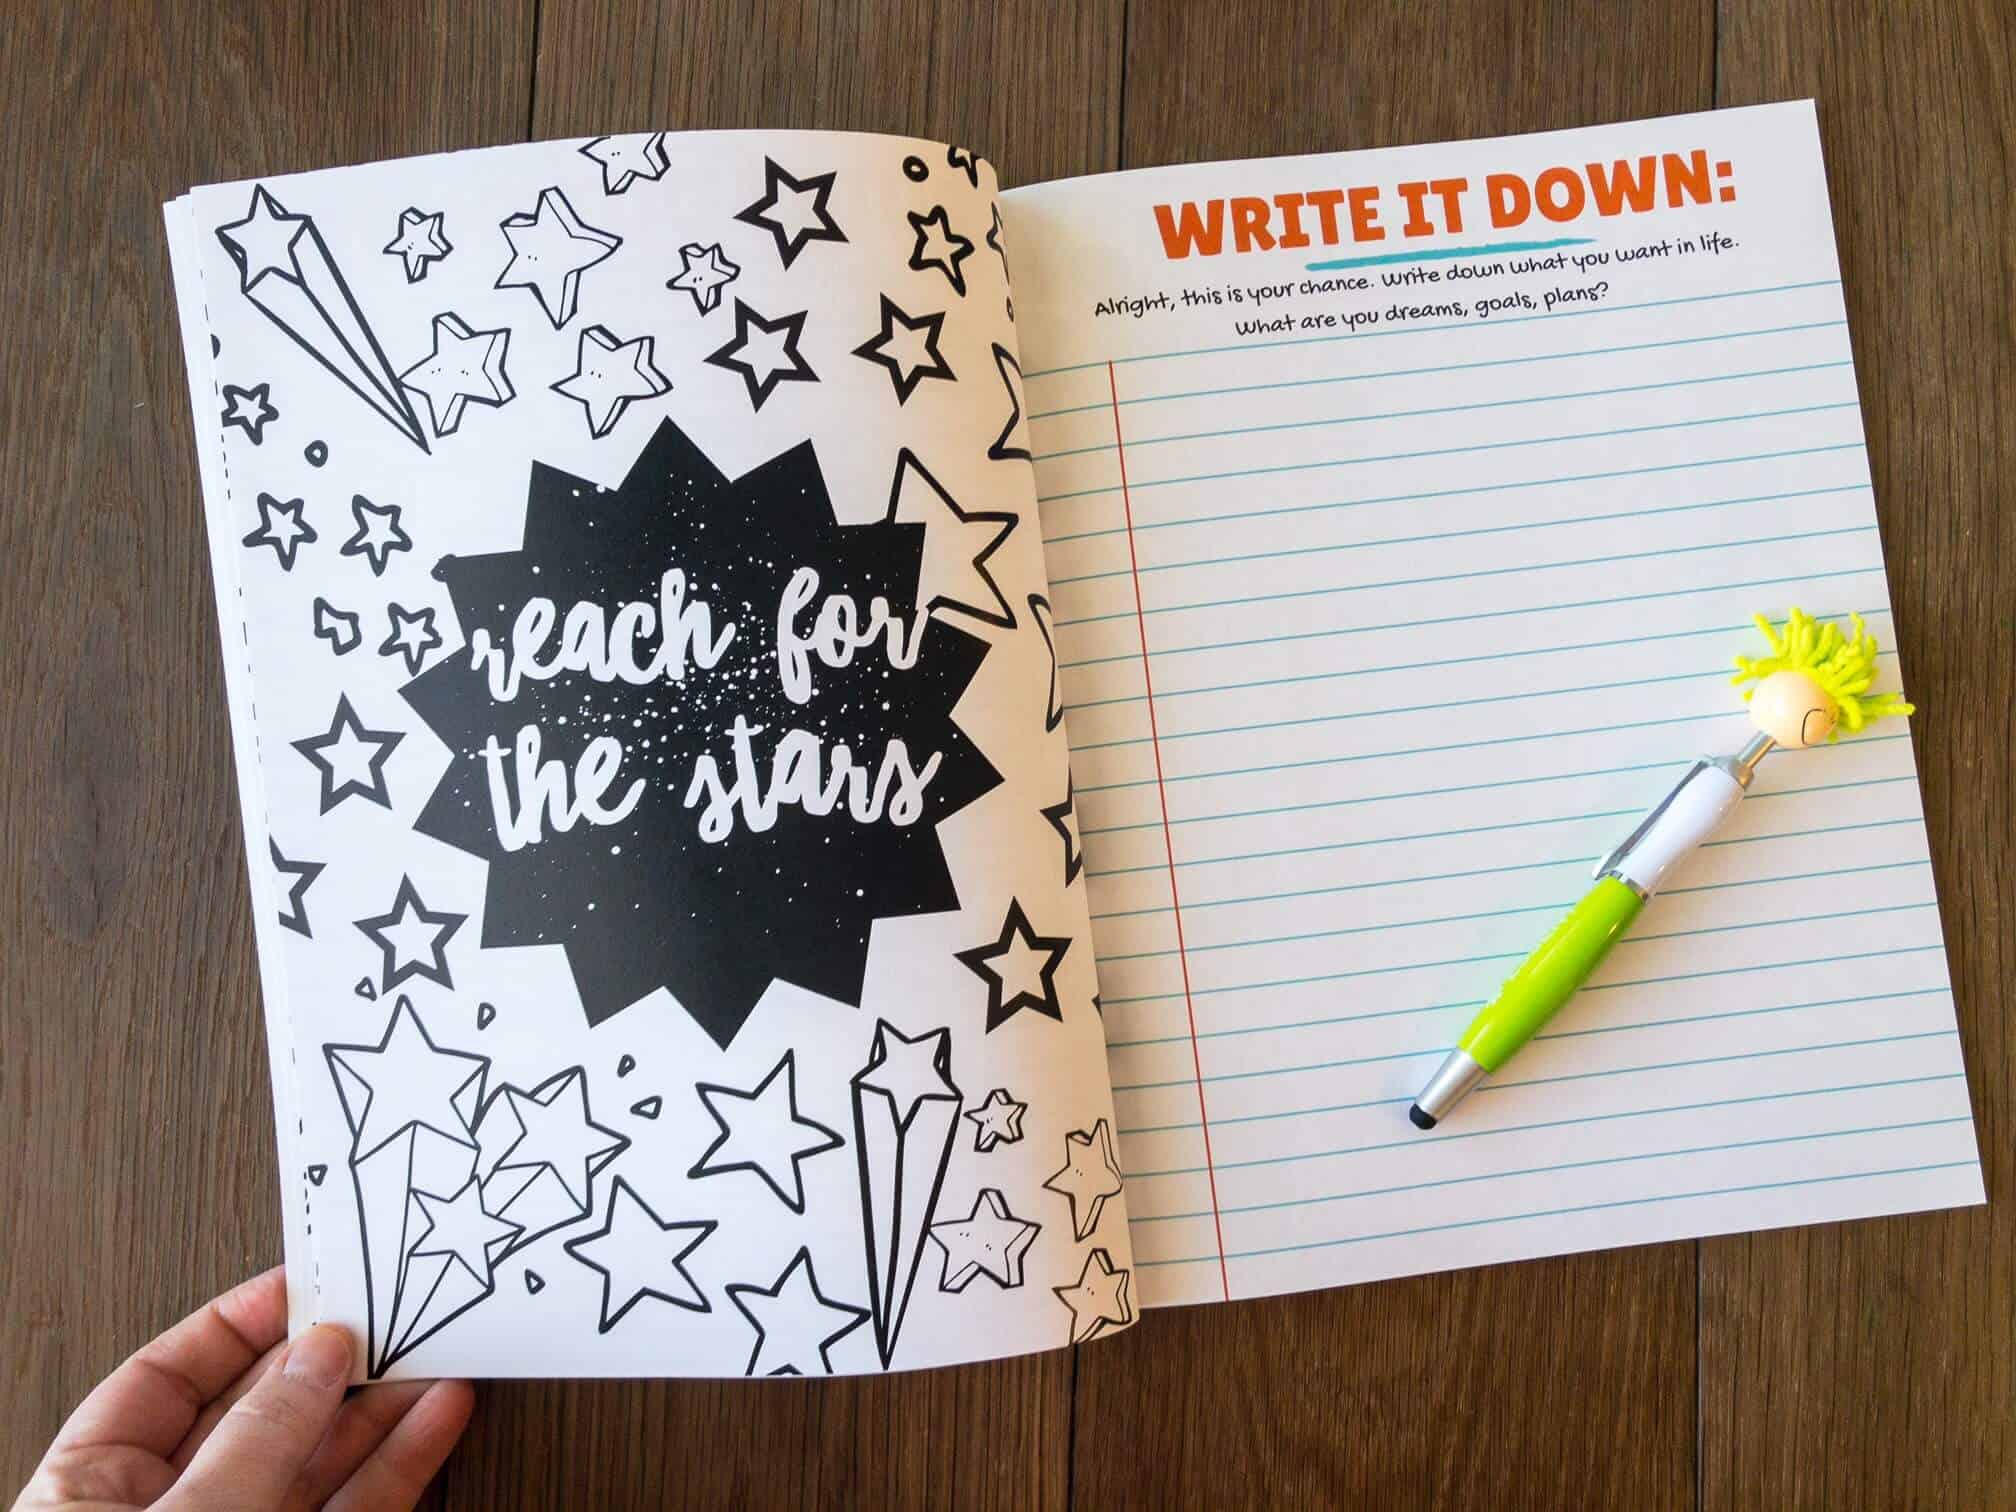 reach for
the stars
WRITE IT DOWN:
Alright, this is your chance. Write down what you want in life.
What are you dreams, goals, plans?